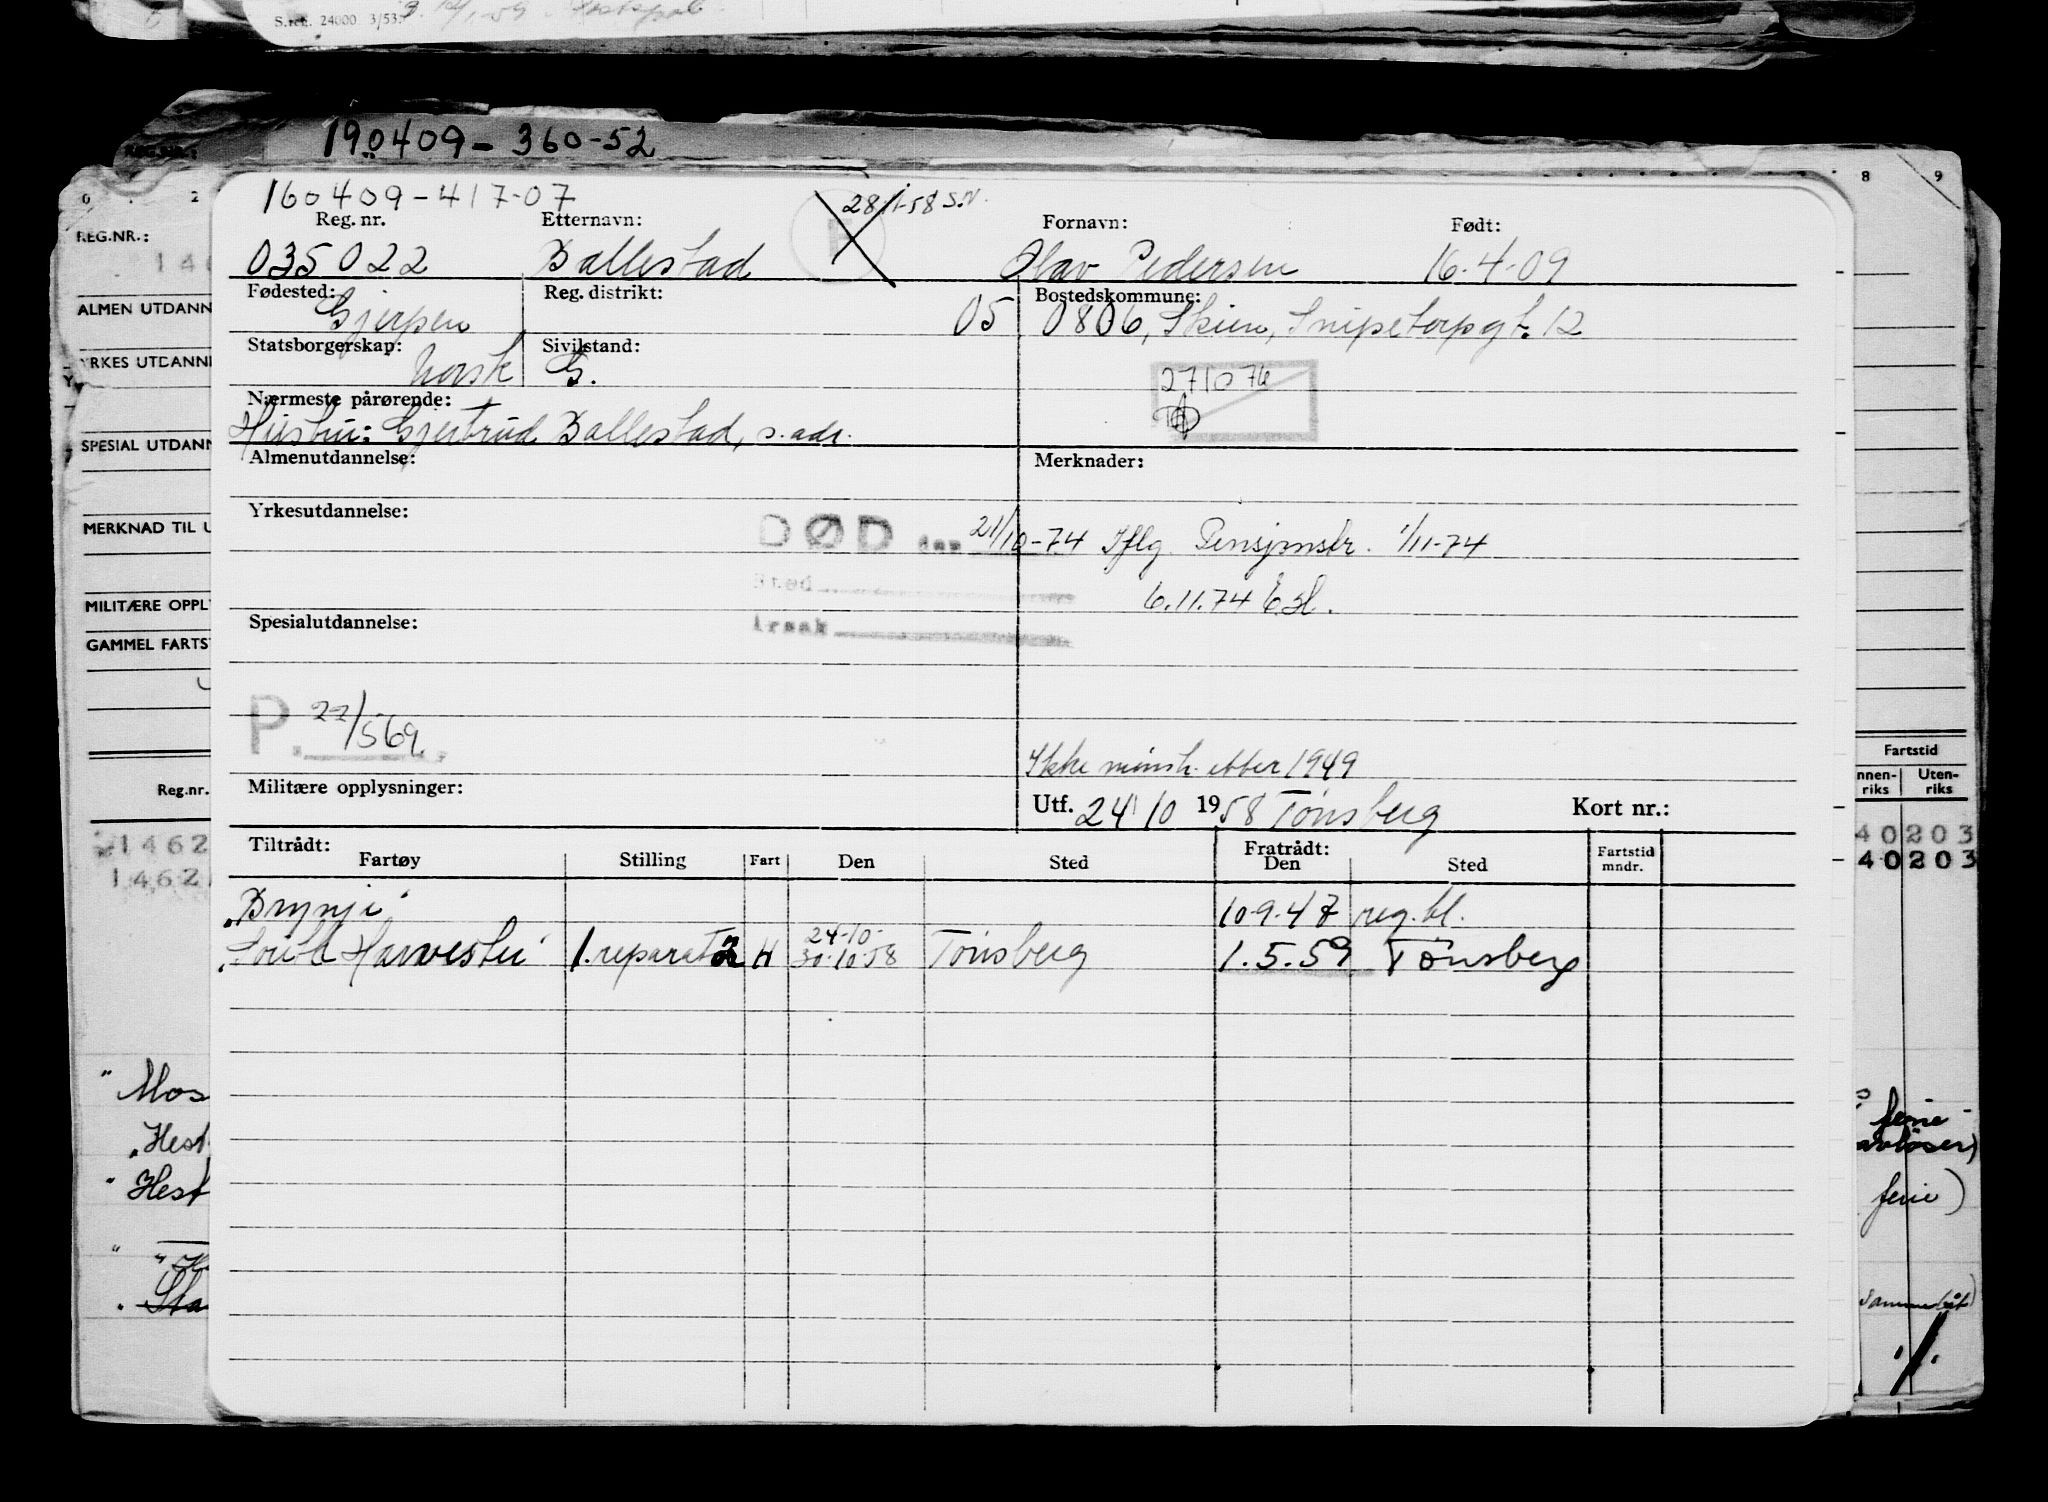 S.reg. 24000 3/53.
190409-360-52
REG.NR.:
ALMEN UTDANN
YRKES UTDANNE
SPESIAL UTDANN
MERKNAD TIL U
MILITÆRE OPPLY
GAMMEL FARTST
Reg.nr.
1462
1462
"Mos
"Hest
"Hest
160409-417-07
28/1-58 S.N.
Reg. nr. Etternavn: Fornavn: Født:
035022 Ballestad Olav Pedersen 16-4-09
Fødested: Reg. distrikt: Bostedskommune:
Gjerpen 05 0806, Skien, Snipetorpgt. 12
Statsborgerskap: Sivilstand:
Norsk G.
271076
Nærmeste pårørende:
Hustru: Gjertrud Ballestad, s. adr.
Almenutdannelse: Merknader:
Yrkesutdannelse:
DØD den 21/10-74 Iflg. Pensjonstr. 1/11-74
Sted
6.11.74
Spesialutdannelse: Årsak
P. 22/569.
Ikke mønstr. etter 1949
Militære opplysninger: Utf. 24/10 1958 Tønsberg Kort nr.:
Tiltrådt: Fratrådt:
Fartøy Stilling Fart Den Sted Den Sted Fartstid mndr.
"Brynje" 10.9.47 reg.bl.
24-10-
"South Harvester" 1. reparatør H 30-10-58 Tønsberg 1.5.59 Tønsberg
8 9
Fartstid
nnen- Uten-
riks riks
40203
40203
ferie
avløser)
ferie)